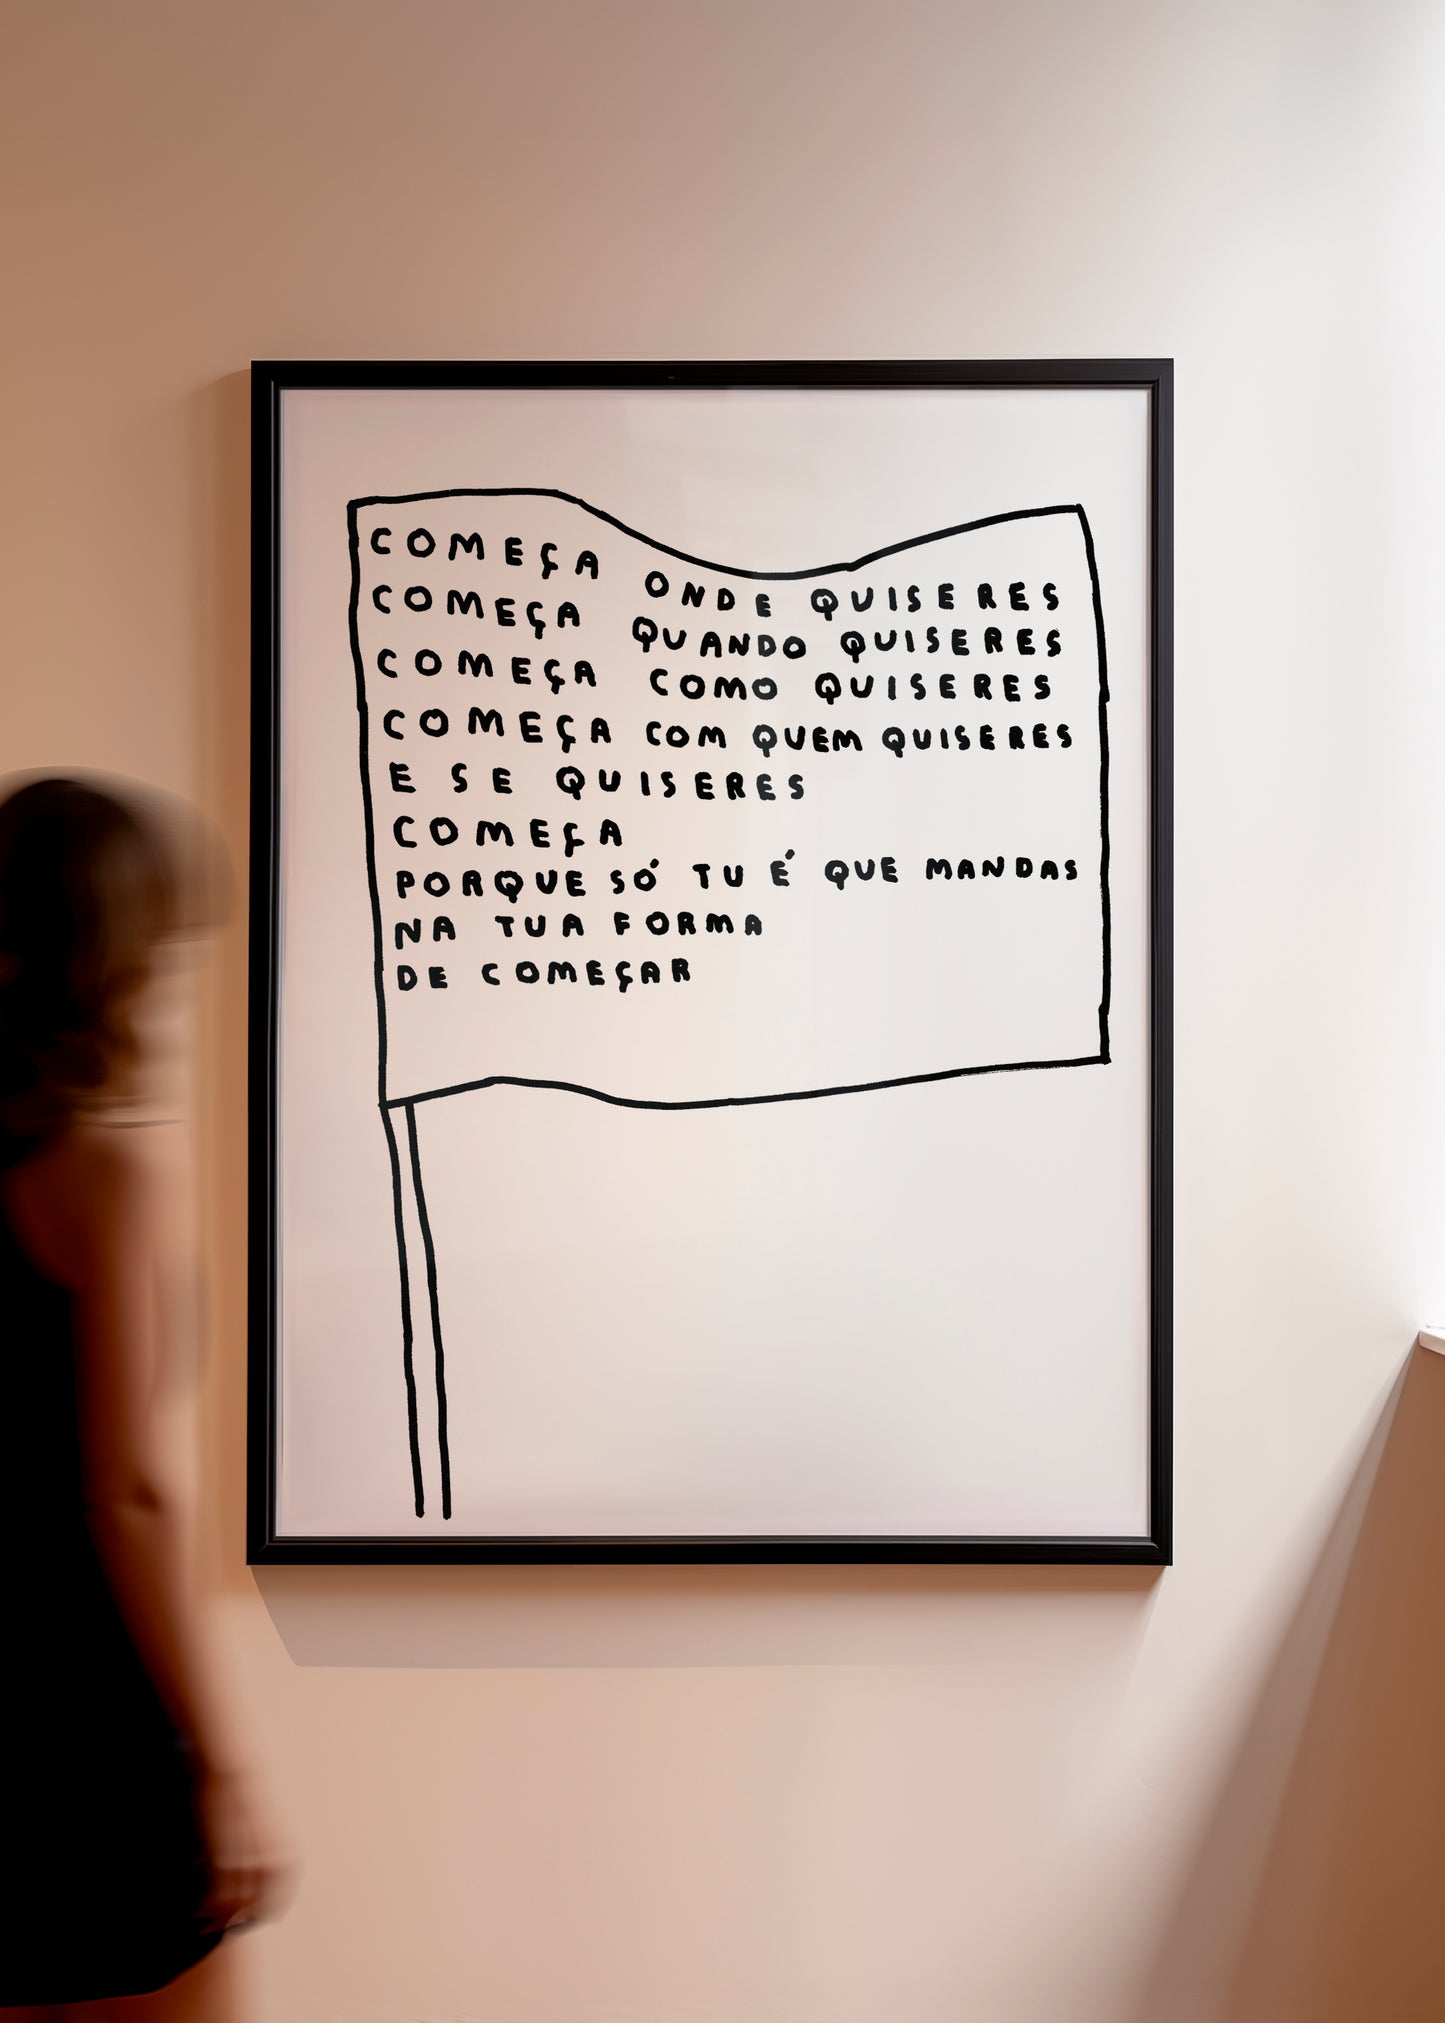 COMEÇA ONDE QUISERES
COMEÇA QUANDO QUISERES
COMEÇA COMO QUISERES
COMEÇA COM QUEM QUISERES
E SE QUISERES
COMEÇA
PORQUE SÓ TU É QUE MANDAS
NA TUA FORMA
DE COMEÇAR